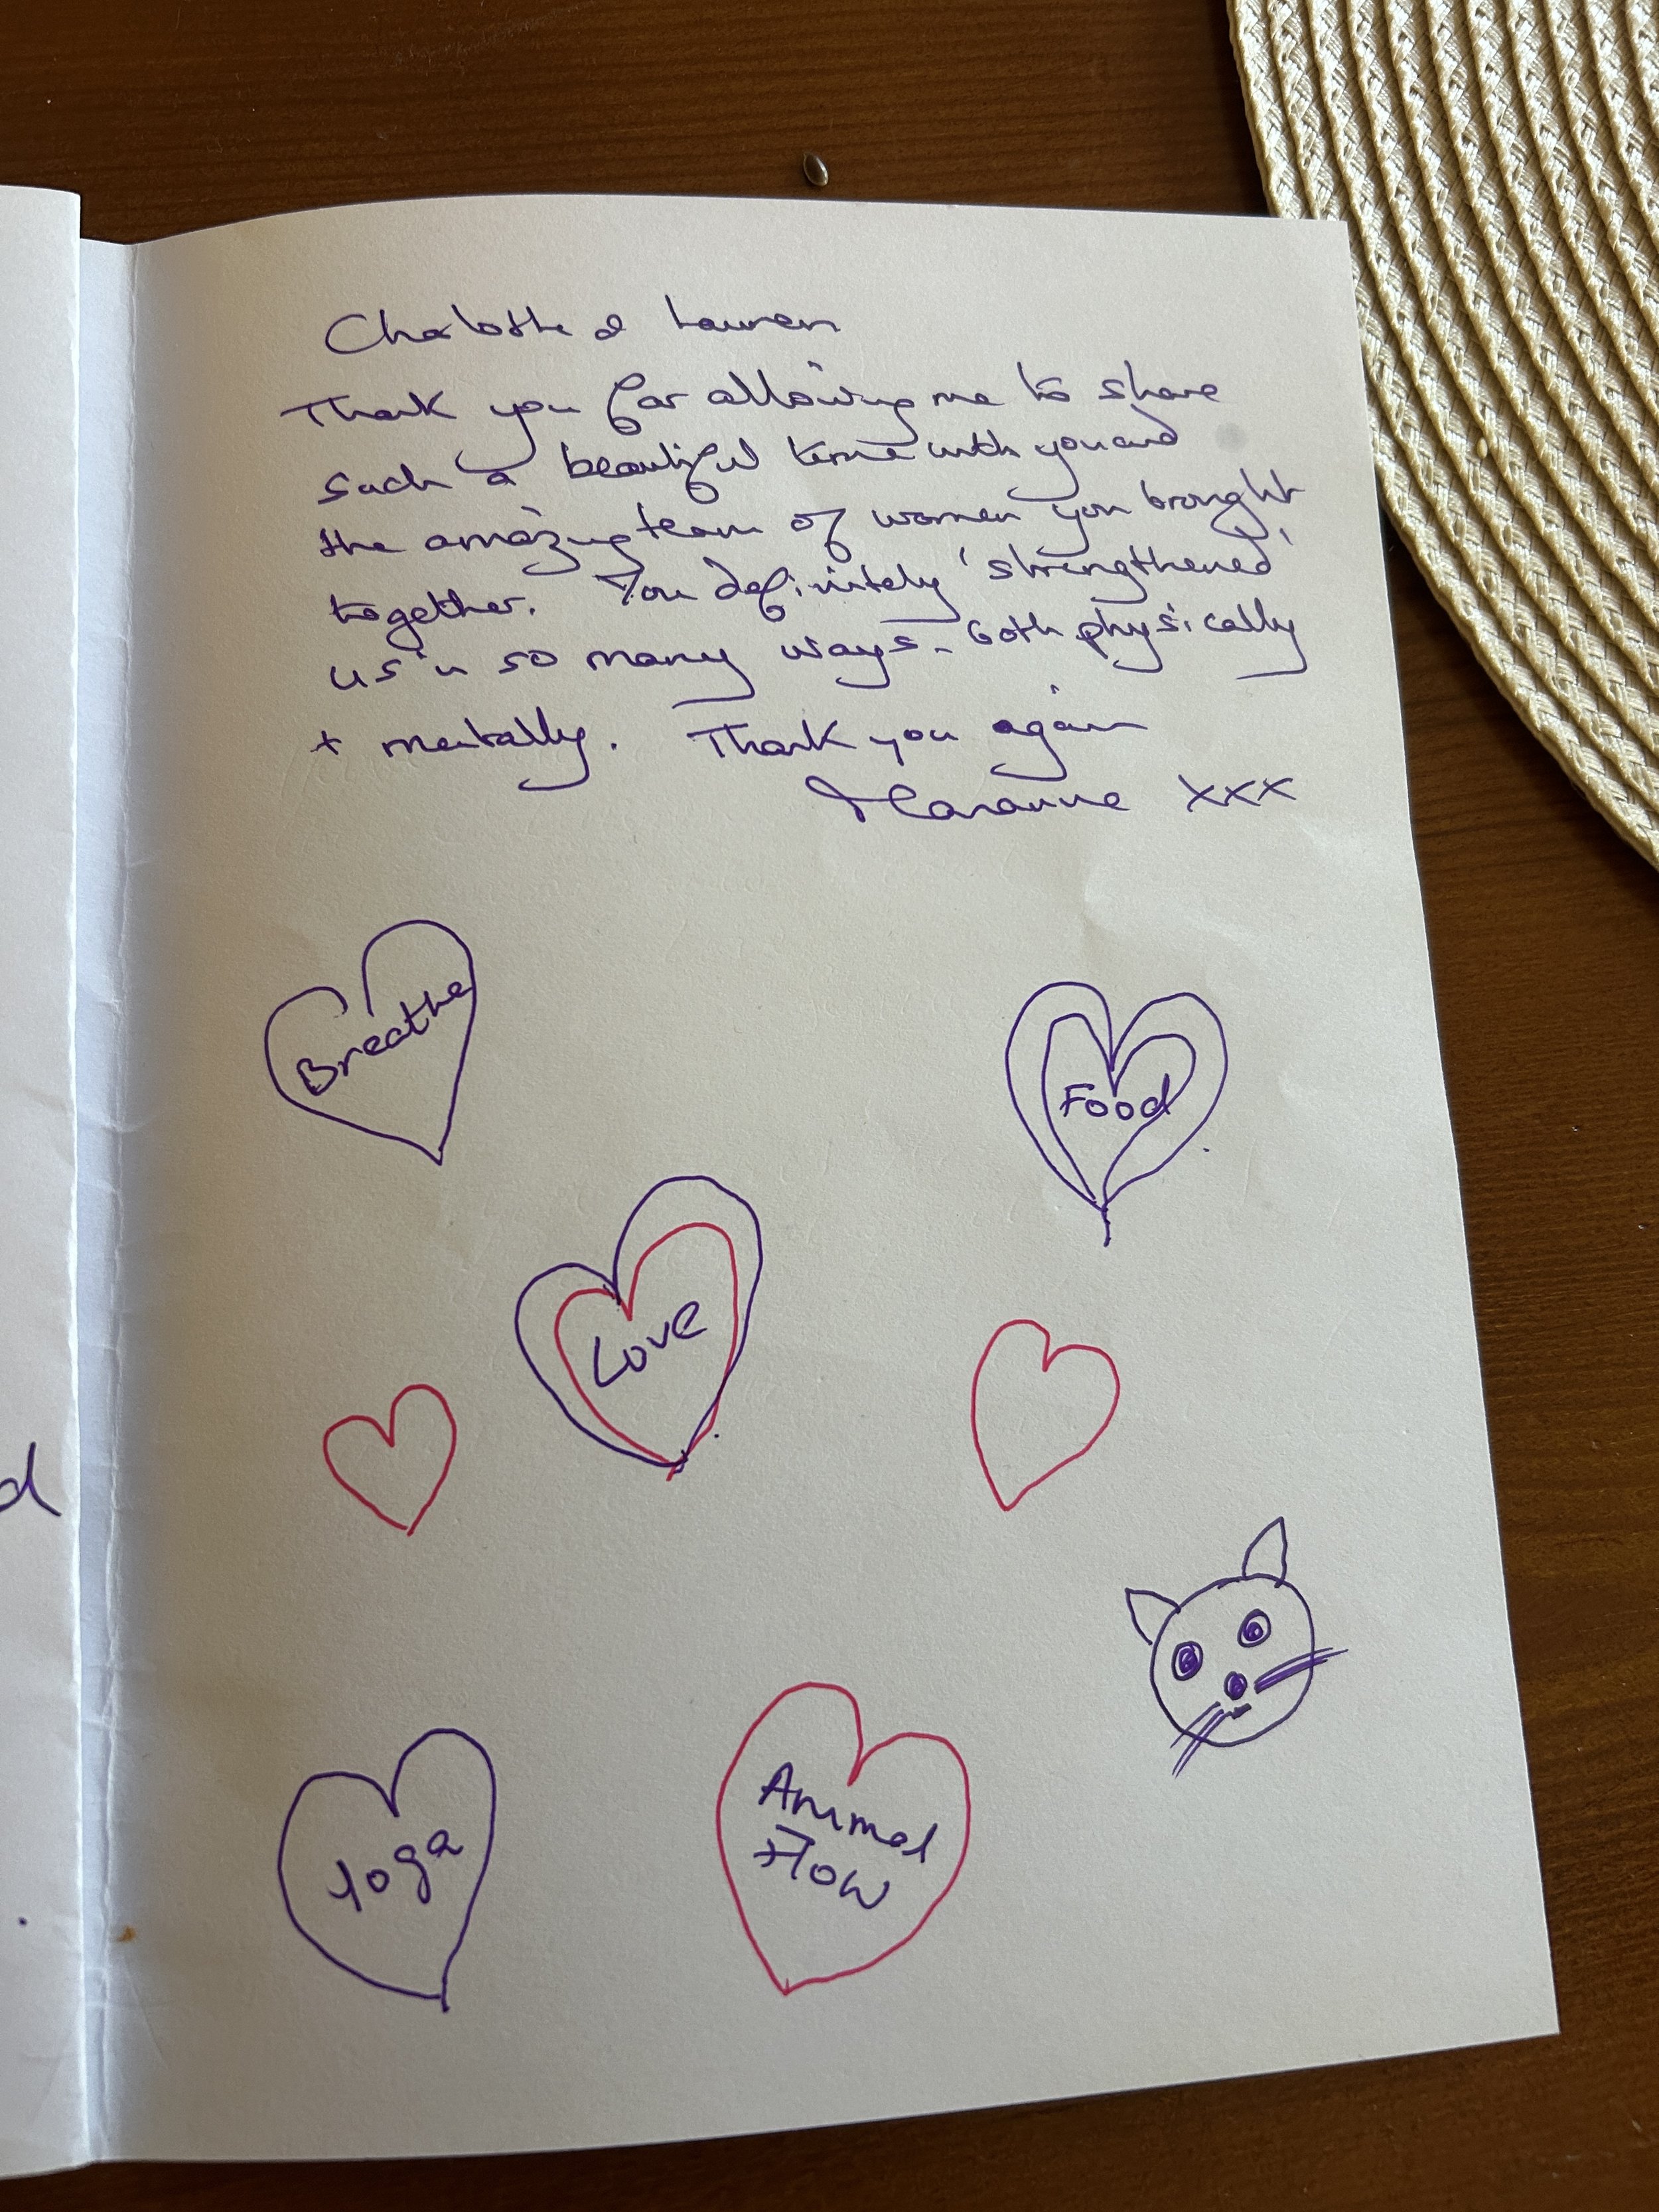 Charlotte & Lauren
Thank you for allowing me to share
such a beautiful time with you and
the amazing team of women you brought
together. You definitely 'strengthened'
us in so many ways - both physically
+ mentally. Thank you again
xxx
Breathe
Food
Love
d
Yoga
Animal
Flow